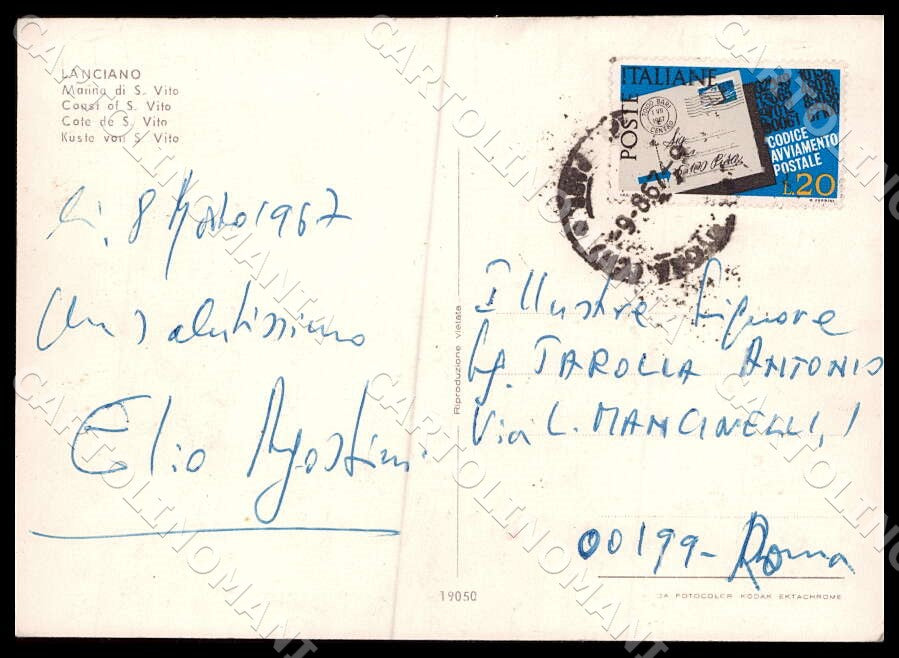 LANCIANO
Marina di S. Vito
Coast of S. Vito
Cote de S. Vito
Küste von S. Vito
8 1967
Un salutissimo
Elio Agostini
Riproduzione vietata
19050
POSTE ITALIANE
7000 BARI
1 VII
1967
CENTRO
CODICE
AVVIAMENTO
POSTALE
L.20
Illustre Signore
TAROLLA ANTONIO
Via L. MANCINELLI, 1
00199 - Roma
DA FOTOCOLOR KODAK EKTACHROME
CARTOLINOMANI